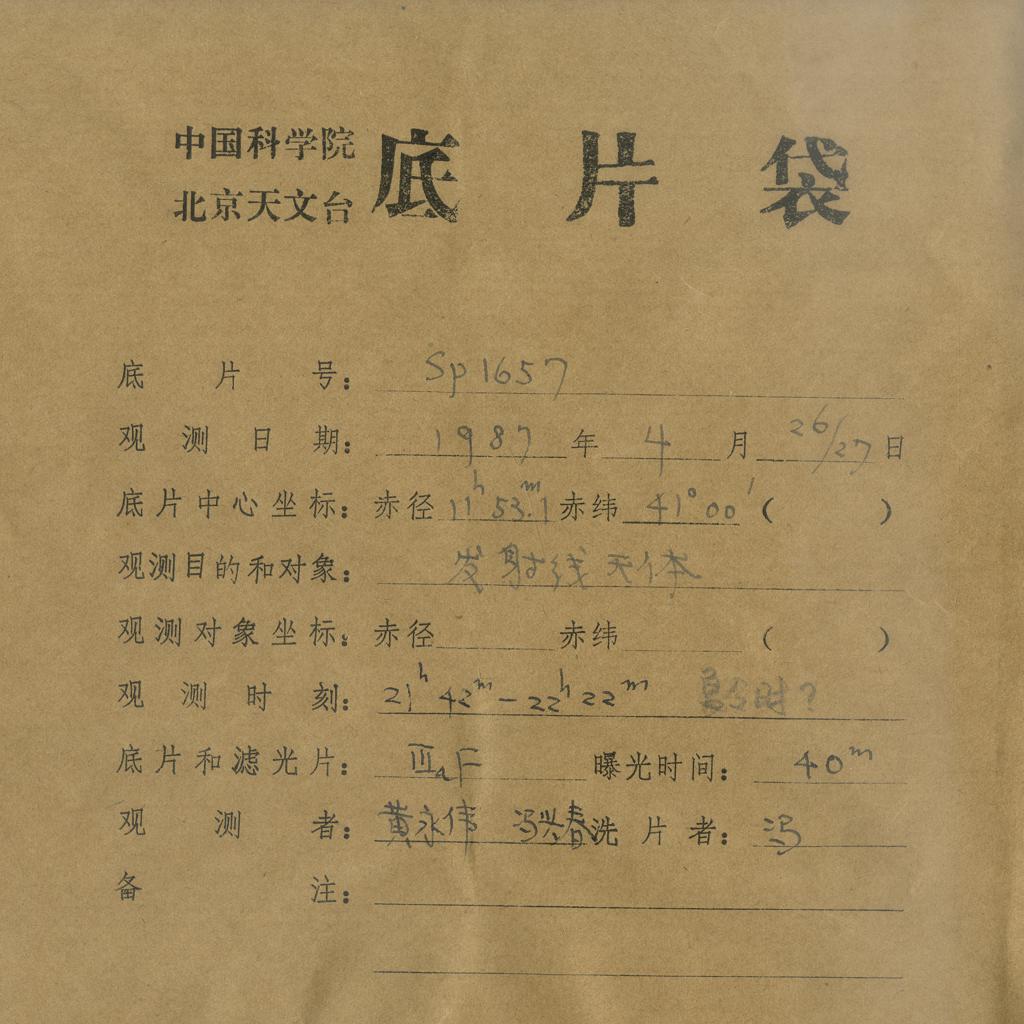 中国科学院
北京天文台
底片袋
底片号：Sp1657
观测日期：1987年4月26/27日
底片中心坐标：赤径11h53m.1赤纬41°00′（ ）
观测目的和对象：发射线天体
观测对象坐标：赤径 赤纬 （ ）
观测时刻：21h42m－22h22m
底片和滤光片：ⅢaF 曝光时间：40m
观测者：黄永伟 冯兴春 洗片者：冯
备注：